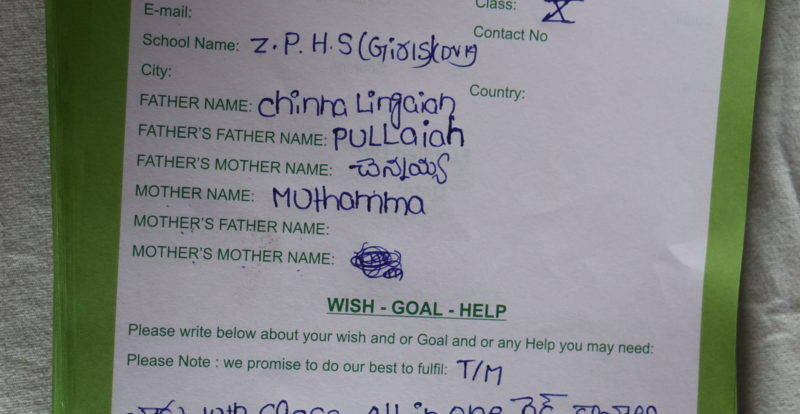 E-mail:
Class: X
School Name: Z.P.H.S (Girls)
Contact No
City:
Country:
FATHER NAME: Chinna Lingaiah
FATHER'S FATHER NAME: PULLaiah
FATHER'S MOTHER NAME:
MOTHER NAME: Muthamma
MOTHER'S FATHER NAME:
MOTHER'S MOTHER NAME:
WISH - GOAL - HELP
Please write below about your wish and or Goal and or any Help you may need:
Please Note : we promise to do our best to fulfil: T/M
10th class all in one